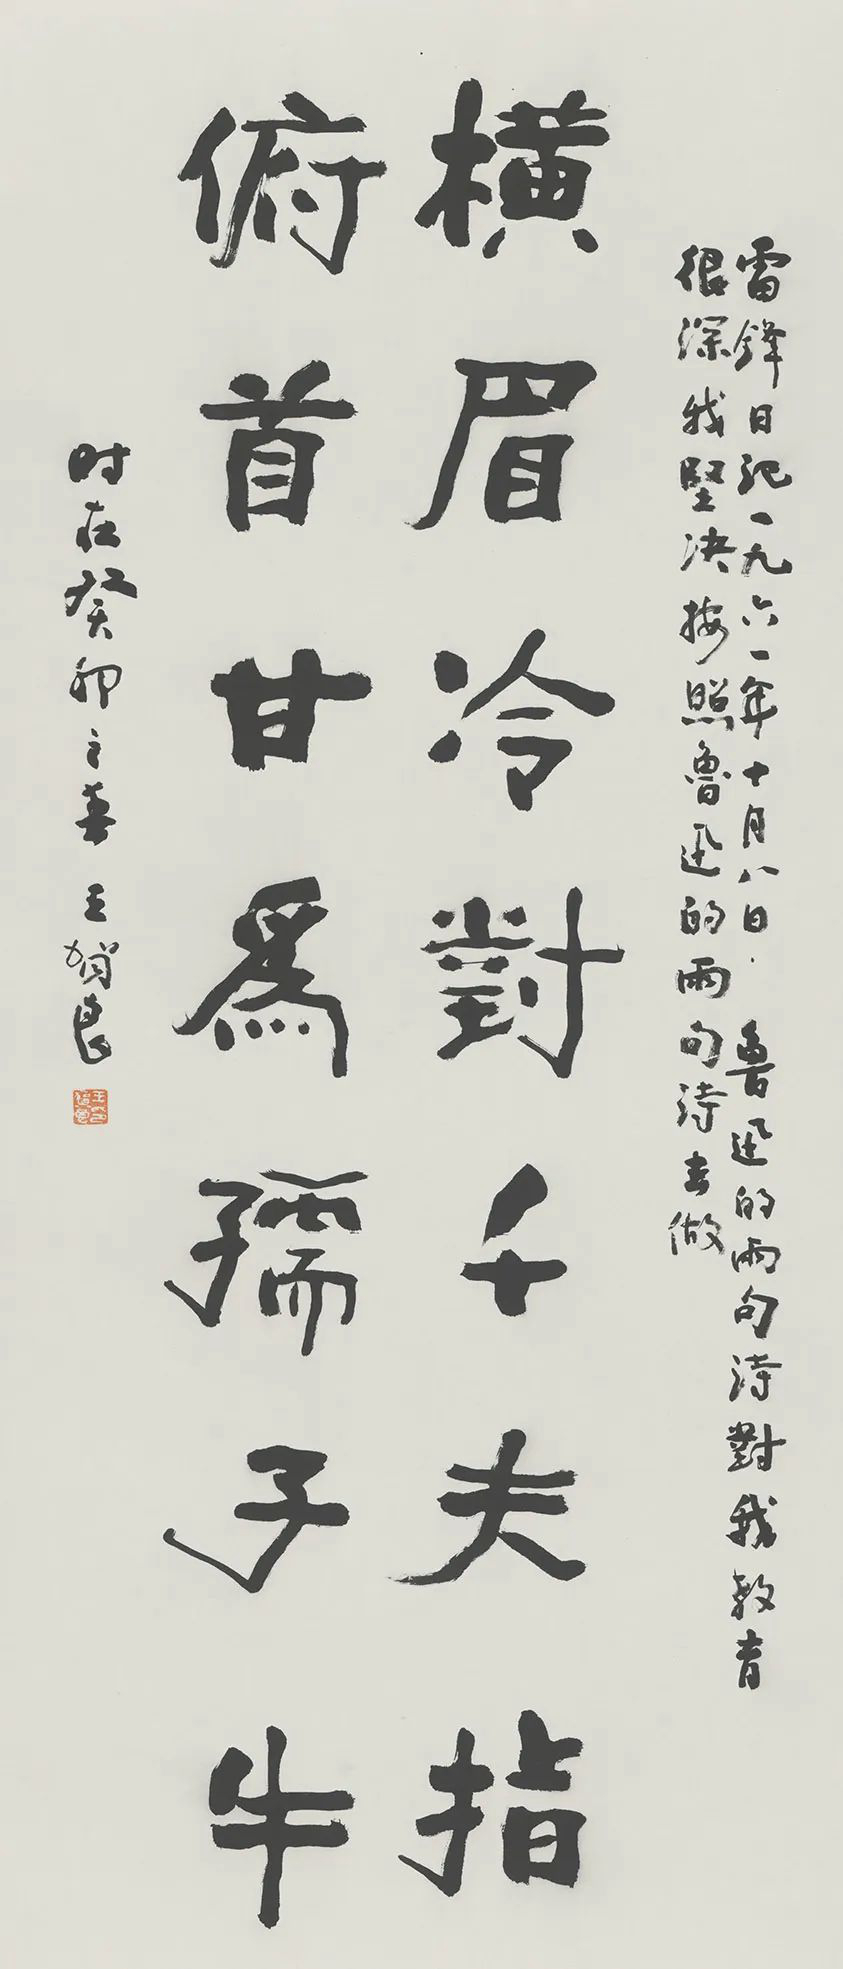 雷鋒日记一九六一年十月八日·魯迅的兩句诗對我教育
很深我堅决按照魯迅的兩句诗去做
橫眉冷對千夫指
俯首甘爲孺子牛
时在癸卯之春 王贺良